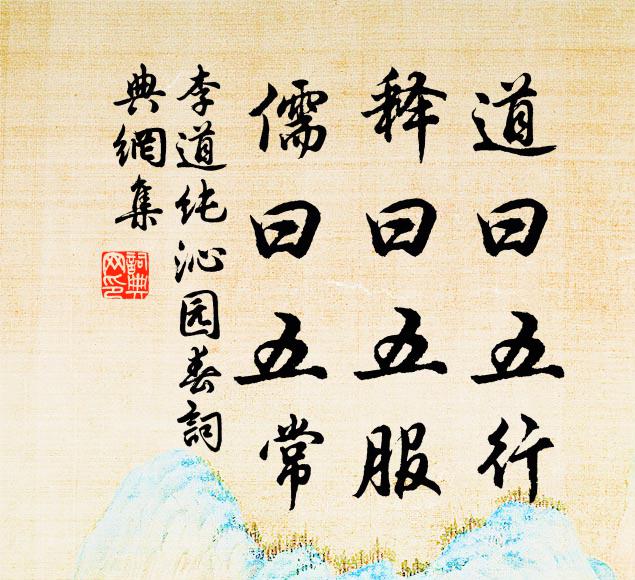 道曰五行
释曰五服
儒曰五常
李道纯沁园春词
典網集
詞典网印